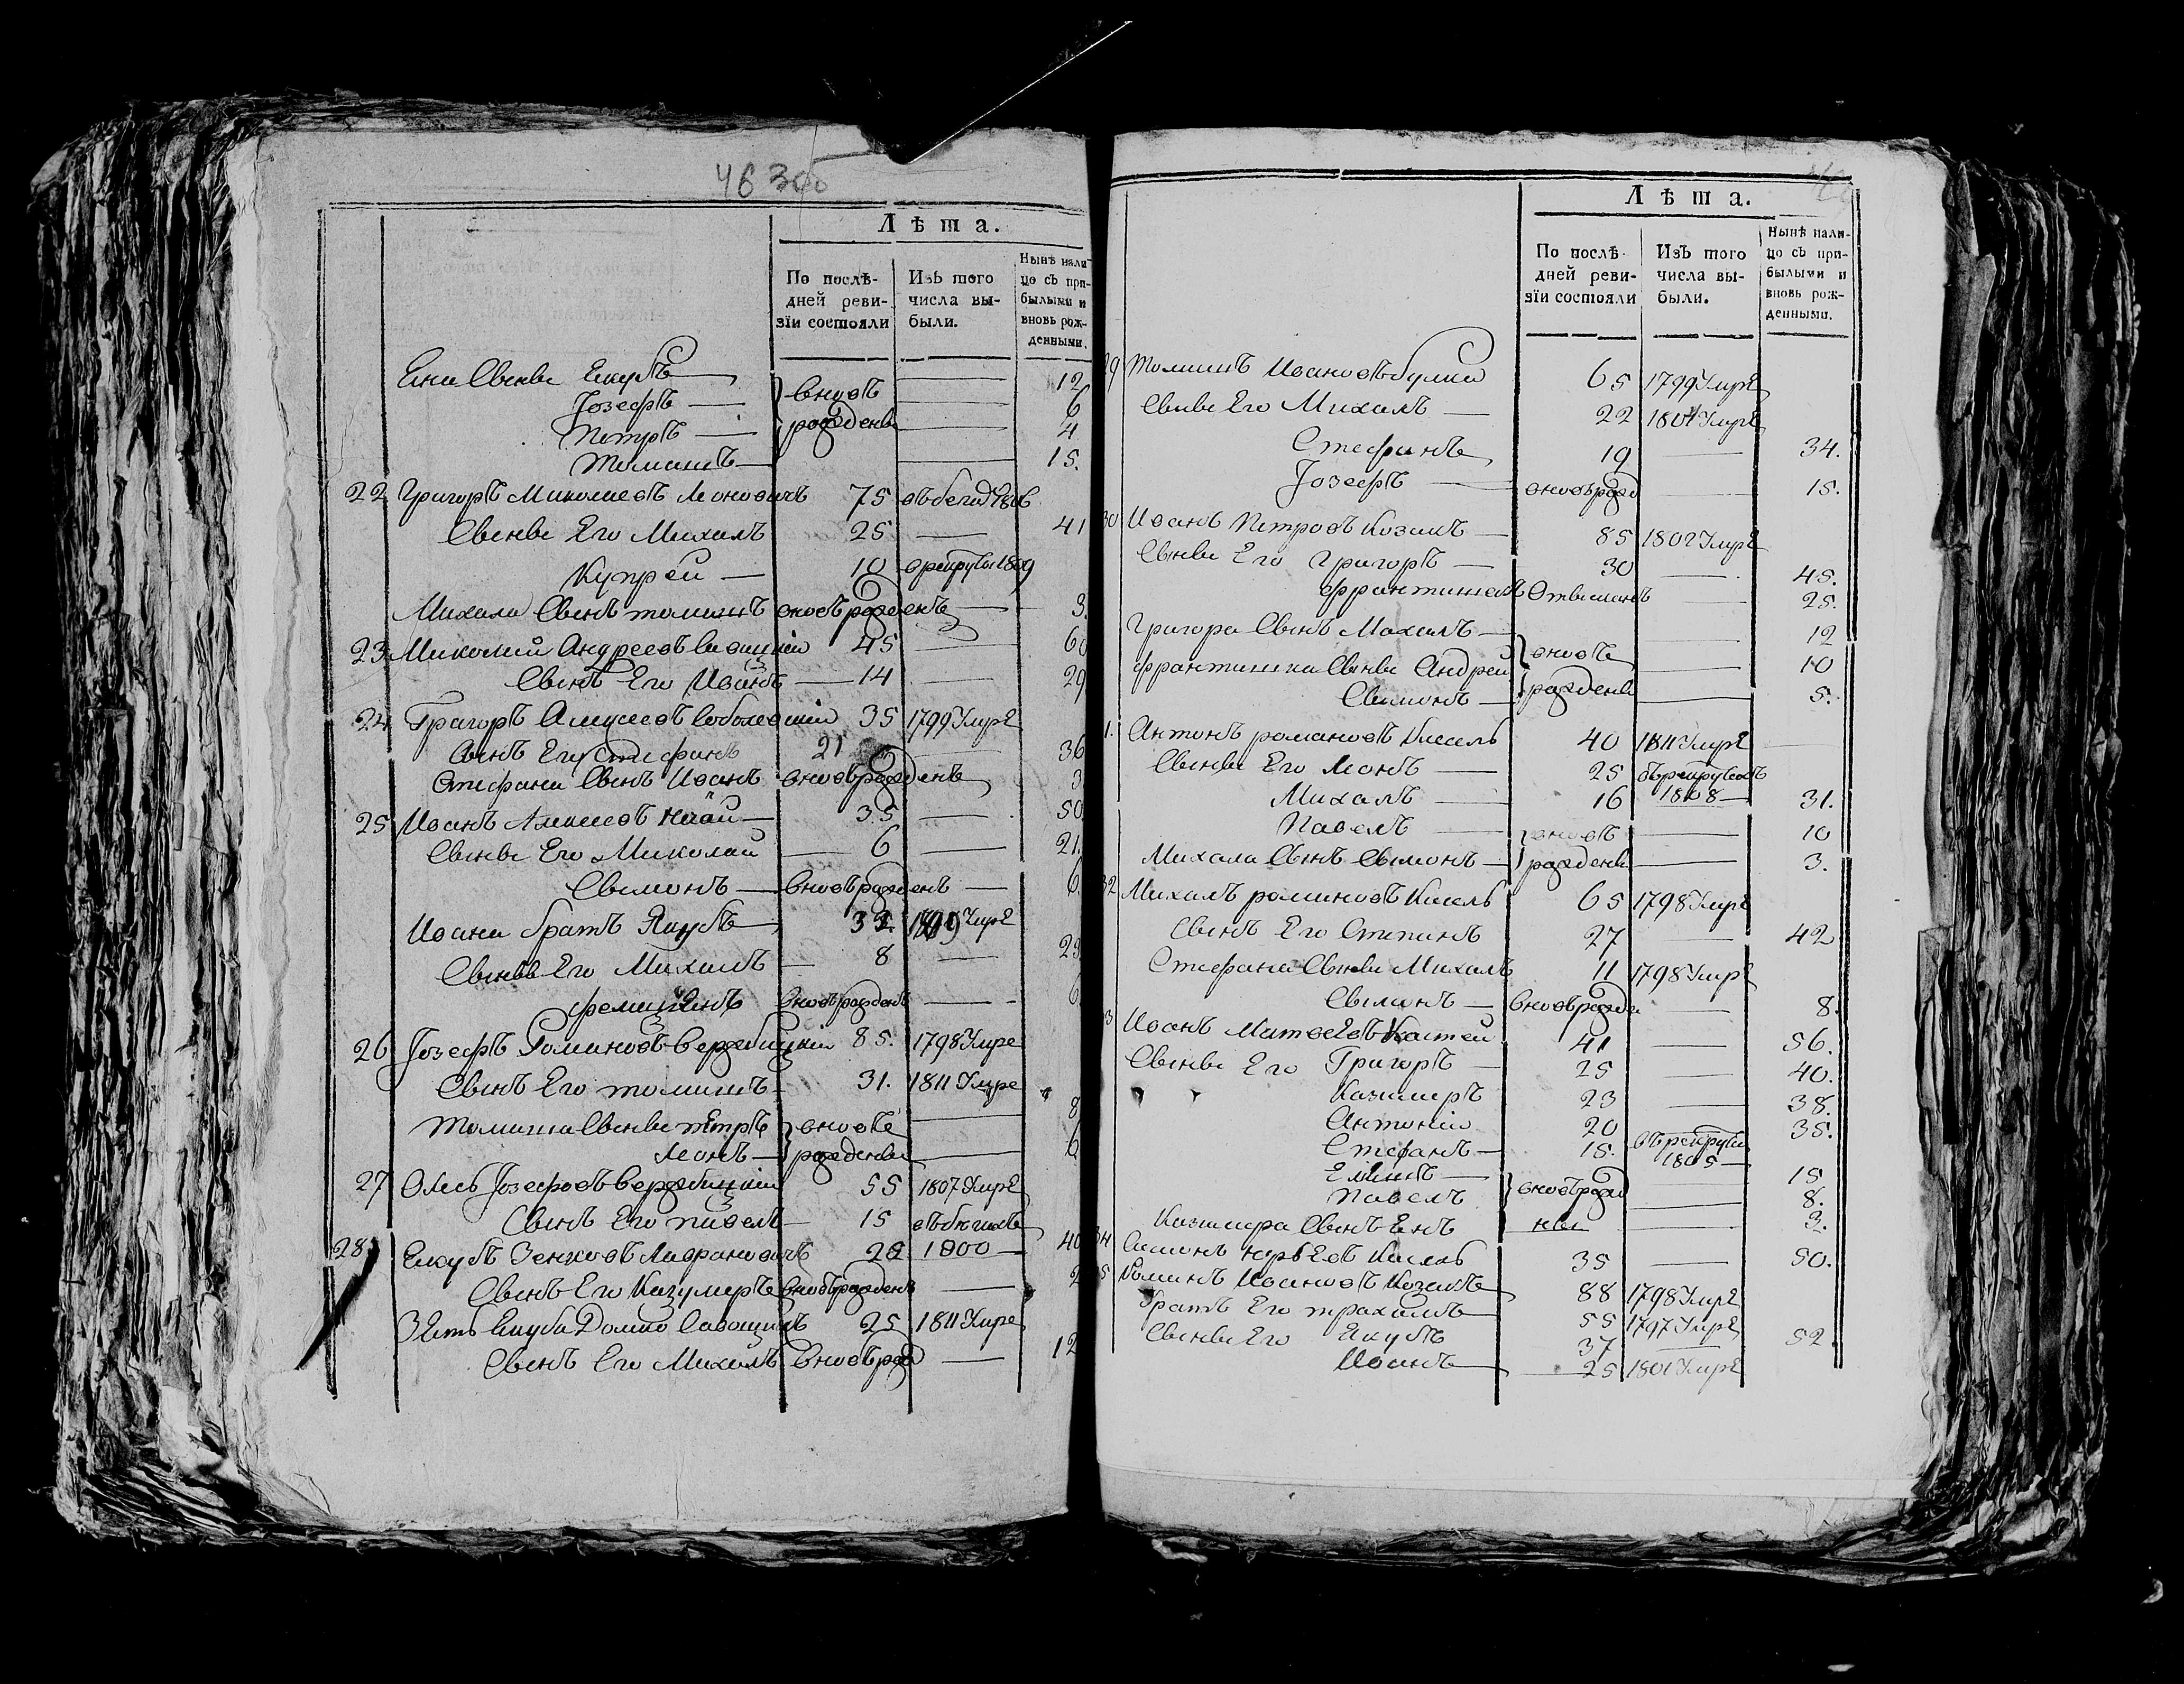 4630б
Лѣта.
По послѣ-дней реви-зїи состояли | Изъ того числа вы-были. | Ныне нали-цо съ при-былыми и вновь рож-денными.
Ена Сынве Екубъ — } вновъ — 12
Јозефъ — — 6
Петръ — } рождены — 4
Томашъ — — 15.
22 Григоръ Миколаевъ Леоновичъ 75 въ бегах 1806
Сынве Его Михалъ 25 — 41
Купрей — 10 врекруты 1809
Михала Сынъ томашъ вновъ рожденъ — 3.
23 Миколай Андреевъ 45 — 60
Сынъ Его Иванъ — 14 — 29
24 Григоръ Алексеевъ Соболевский 35 1799 Умре
Сынъ Егу Стефанъ 21 — 36
Стефана Сынъ Иванъ вновъ рожденъ 3.
25 Иванъ Алексеевъ — 35 — 50
Сынве Его Миколай — 6 — 21.
Сымонъ — вновъ рожденъ — 6.
Ивана братъ Якубъ 1809 Умре
Сынве Его Михалъ — 8 — 23
вновъ рожденъ — 6.
26 Јозефъ Романовъ Вержбицкий 85. 1798 Умре
Сынъ Его томашъ 31. 1811 Умре
Томаша Сынве Петръ } вновъ — 8
Леонъ — } рождены — 6
27 Олесь Јозефовъ Вержбицкий 55 1807 Умре
Сынъ Его павелъ — 15 въ бегахъ
28 Екубъ Зенковъ Лавриновичъ 28 1800 — 40
Сынъ Его Казумеръ вновъ рожденъ — 2
Зеть Екуба 25 1811 Умре
Сынъ Его Михалъ вновъ рож — 12
Лѣта.
По послѣ-дней реви-зїи состояли | Изъ того числа вы-были. | Ныне нали-цо съ при-былыми и вновь рож-денными.
29 Томашъ Ивановъ булка 65 1799 Умре
Сынве Его Михалъ — 22 1804 Умре
Стефанъ 19 — 34.
Јозефъ — вновъ рож — 15.
30 Иванъ Петровъ Козакъ — 85 1802 Умре
Сынве Его Григоръ — 30 — 45.
франтишекъ — 25.
Григора Сынъ Михалъ — } вновъ — 12
франтишка Сынве Андрей — 10
Сымонъ — } рождены — 5.
1. Антонъ романовъ Кисель 40 1811 Умре
Сынве Его Леонъ — 25 въ рекрутахъ
Михалъ — 16 1808 — 31.
Павелъ — } вновъ — 10
Михала Сынъ Сымонъ — } рождены — 3.
32 Михалъ романовъ Кисель 65 1798 Умре
Сынъ Его Степанъ 27 — 42
Стефана Сынве Михалъ 11 1798 Умре
Сымонъ — вновъ рожде — 8.
3 Иванъ Матвеевъ 41 — 56.
Сынве Его Григоръ — 25 — 40.
Казимеръ 23 — 38.
Антоній 20 — 35.
Стефанъ — 15. въ рекруты 1805 —
— } вновъ рожд — 15
Павелъ — 8.
Казимера Сынъ Енъ ны — 3.
34 Симонъ Юрьевъ Кисель 35 — 50.
5 Романъ Ивановъ Козакъ 88 1798 Умре
Братъ Его трахимъ 55 1797 Умре
Сынве Его Екубъ 37 — 52.
Иванъ — 25 1801 Умре